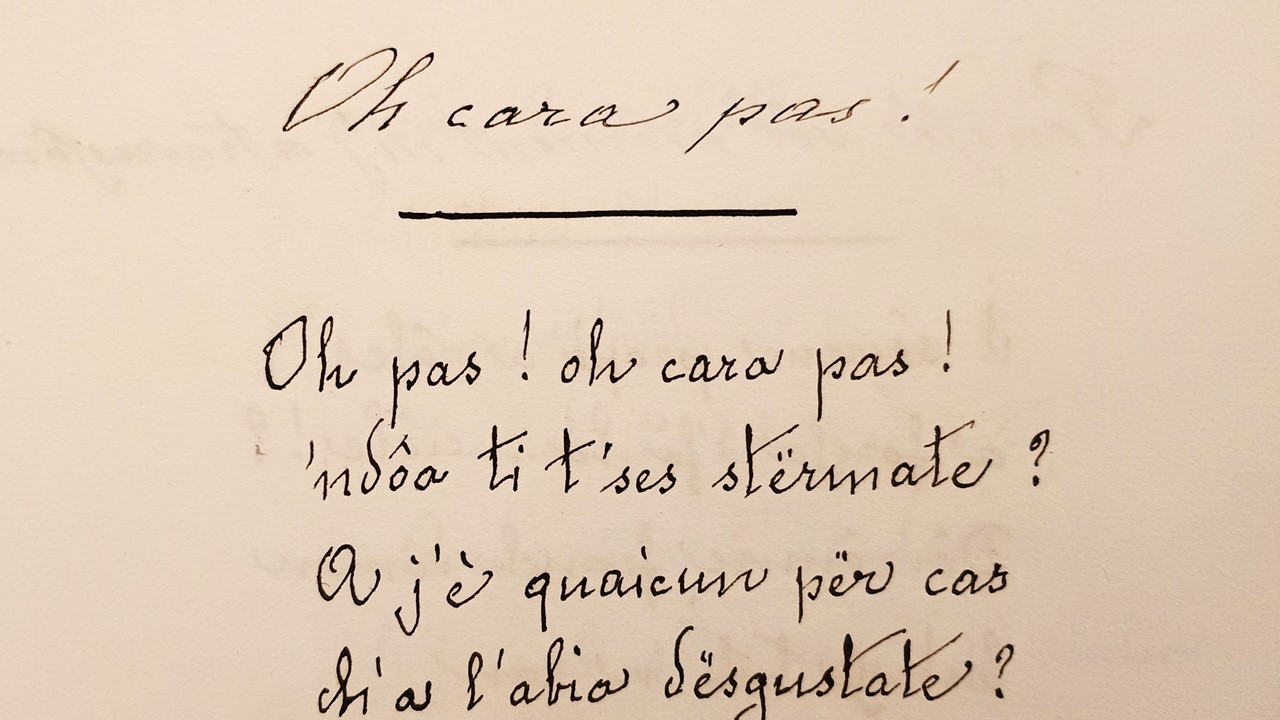 Oh cara pas!
Oh pas! oh cara pas!
'ndôa ti t'ses stërmate?
A j'è quaicun për cas
ch'a l'abia dësgustate?